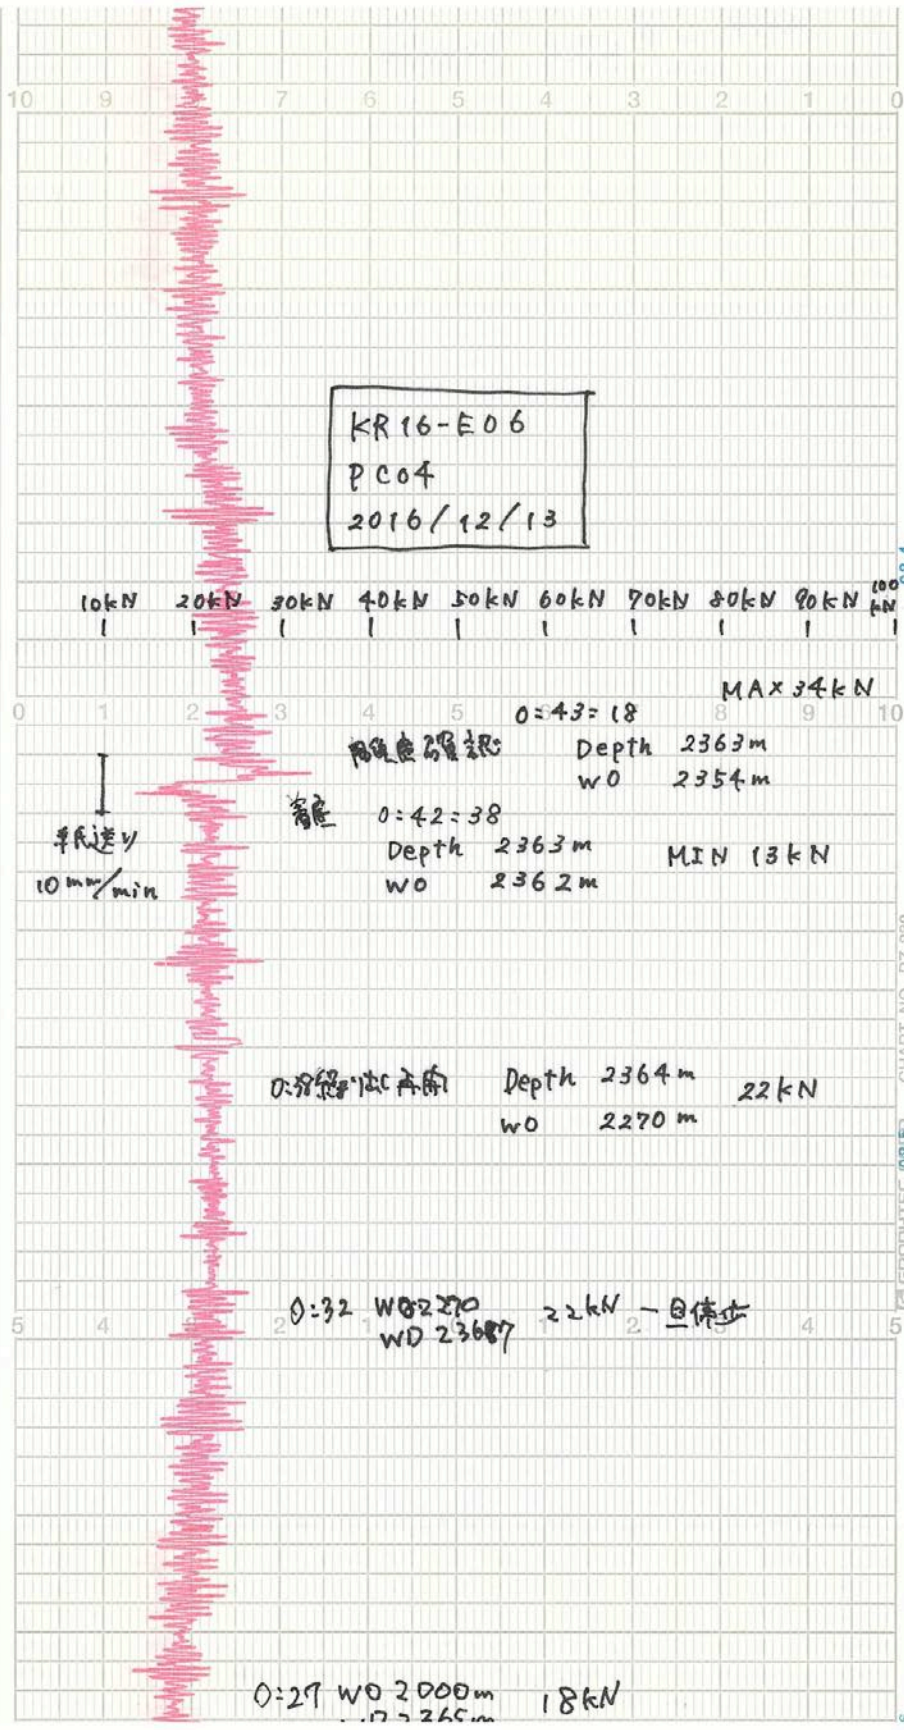 10 9 7 6 5 4 3 2 1 0
KR16-E06
PC04
2016/12/13
10kN 20kN 30kN 40kN 50kN 60kN 70kN 80kN 90kN 100kN
MAX 34kN
0 1 3 4 5 6 7 8 9 10
0:43:18
離底確認 Depth 2363m
WO 2354m
着底 0:42:38
Depth 2363m
WO 2362m
MIN 13kN
紙送り
10mm/min
0:38 再開 Depth 2364m 22kN
WO 2270m
0:32 WO 2270 22kN 一旦停止
5 4 3 2 1 2 3 4 5
WD
0:27 WO 2000m 18kN
2365m